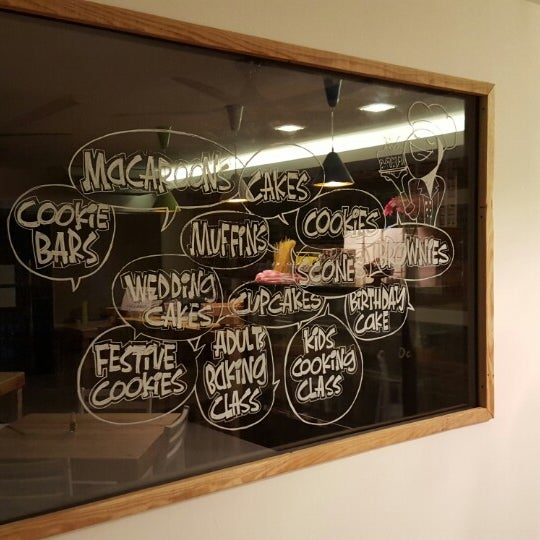 MACAROONS
CAKES
COOKIE
BARS
MUFFINS
COOKIES
BROWNIES
SCONE
WEDDING
CAKES
CUPCAKES
BIRTHDAY
CAKE
FESTIVE
COOKIES
ADULT
BAKING
CLASS
KIDS
COOKING
CLASS